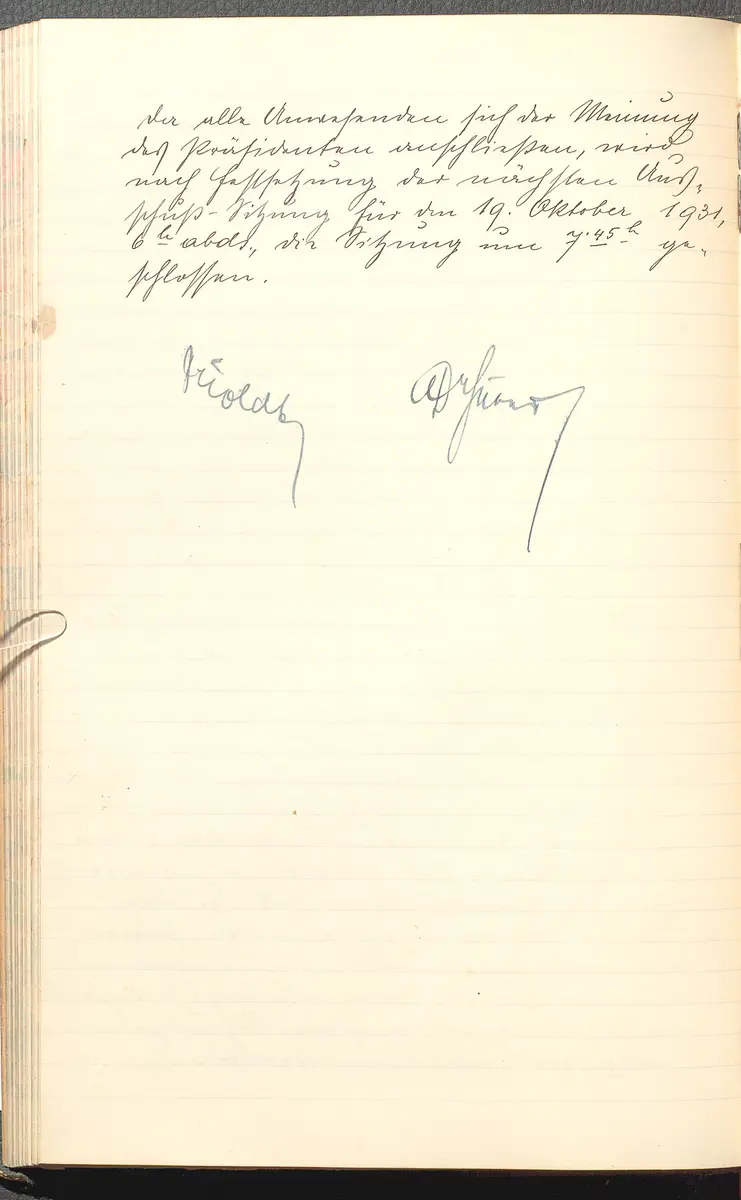 Da alle Anwesenden sich der Meinung
des Präsidenten anschließen, wird
nach Festsetzung der nächsten Aus-
schuß-Sitzung für den 19. Oktober 1931,
6 h abds., die Sitzung um 7.45 h ge-
schlossen.